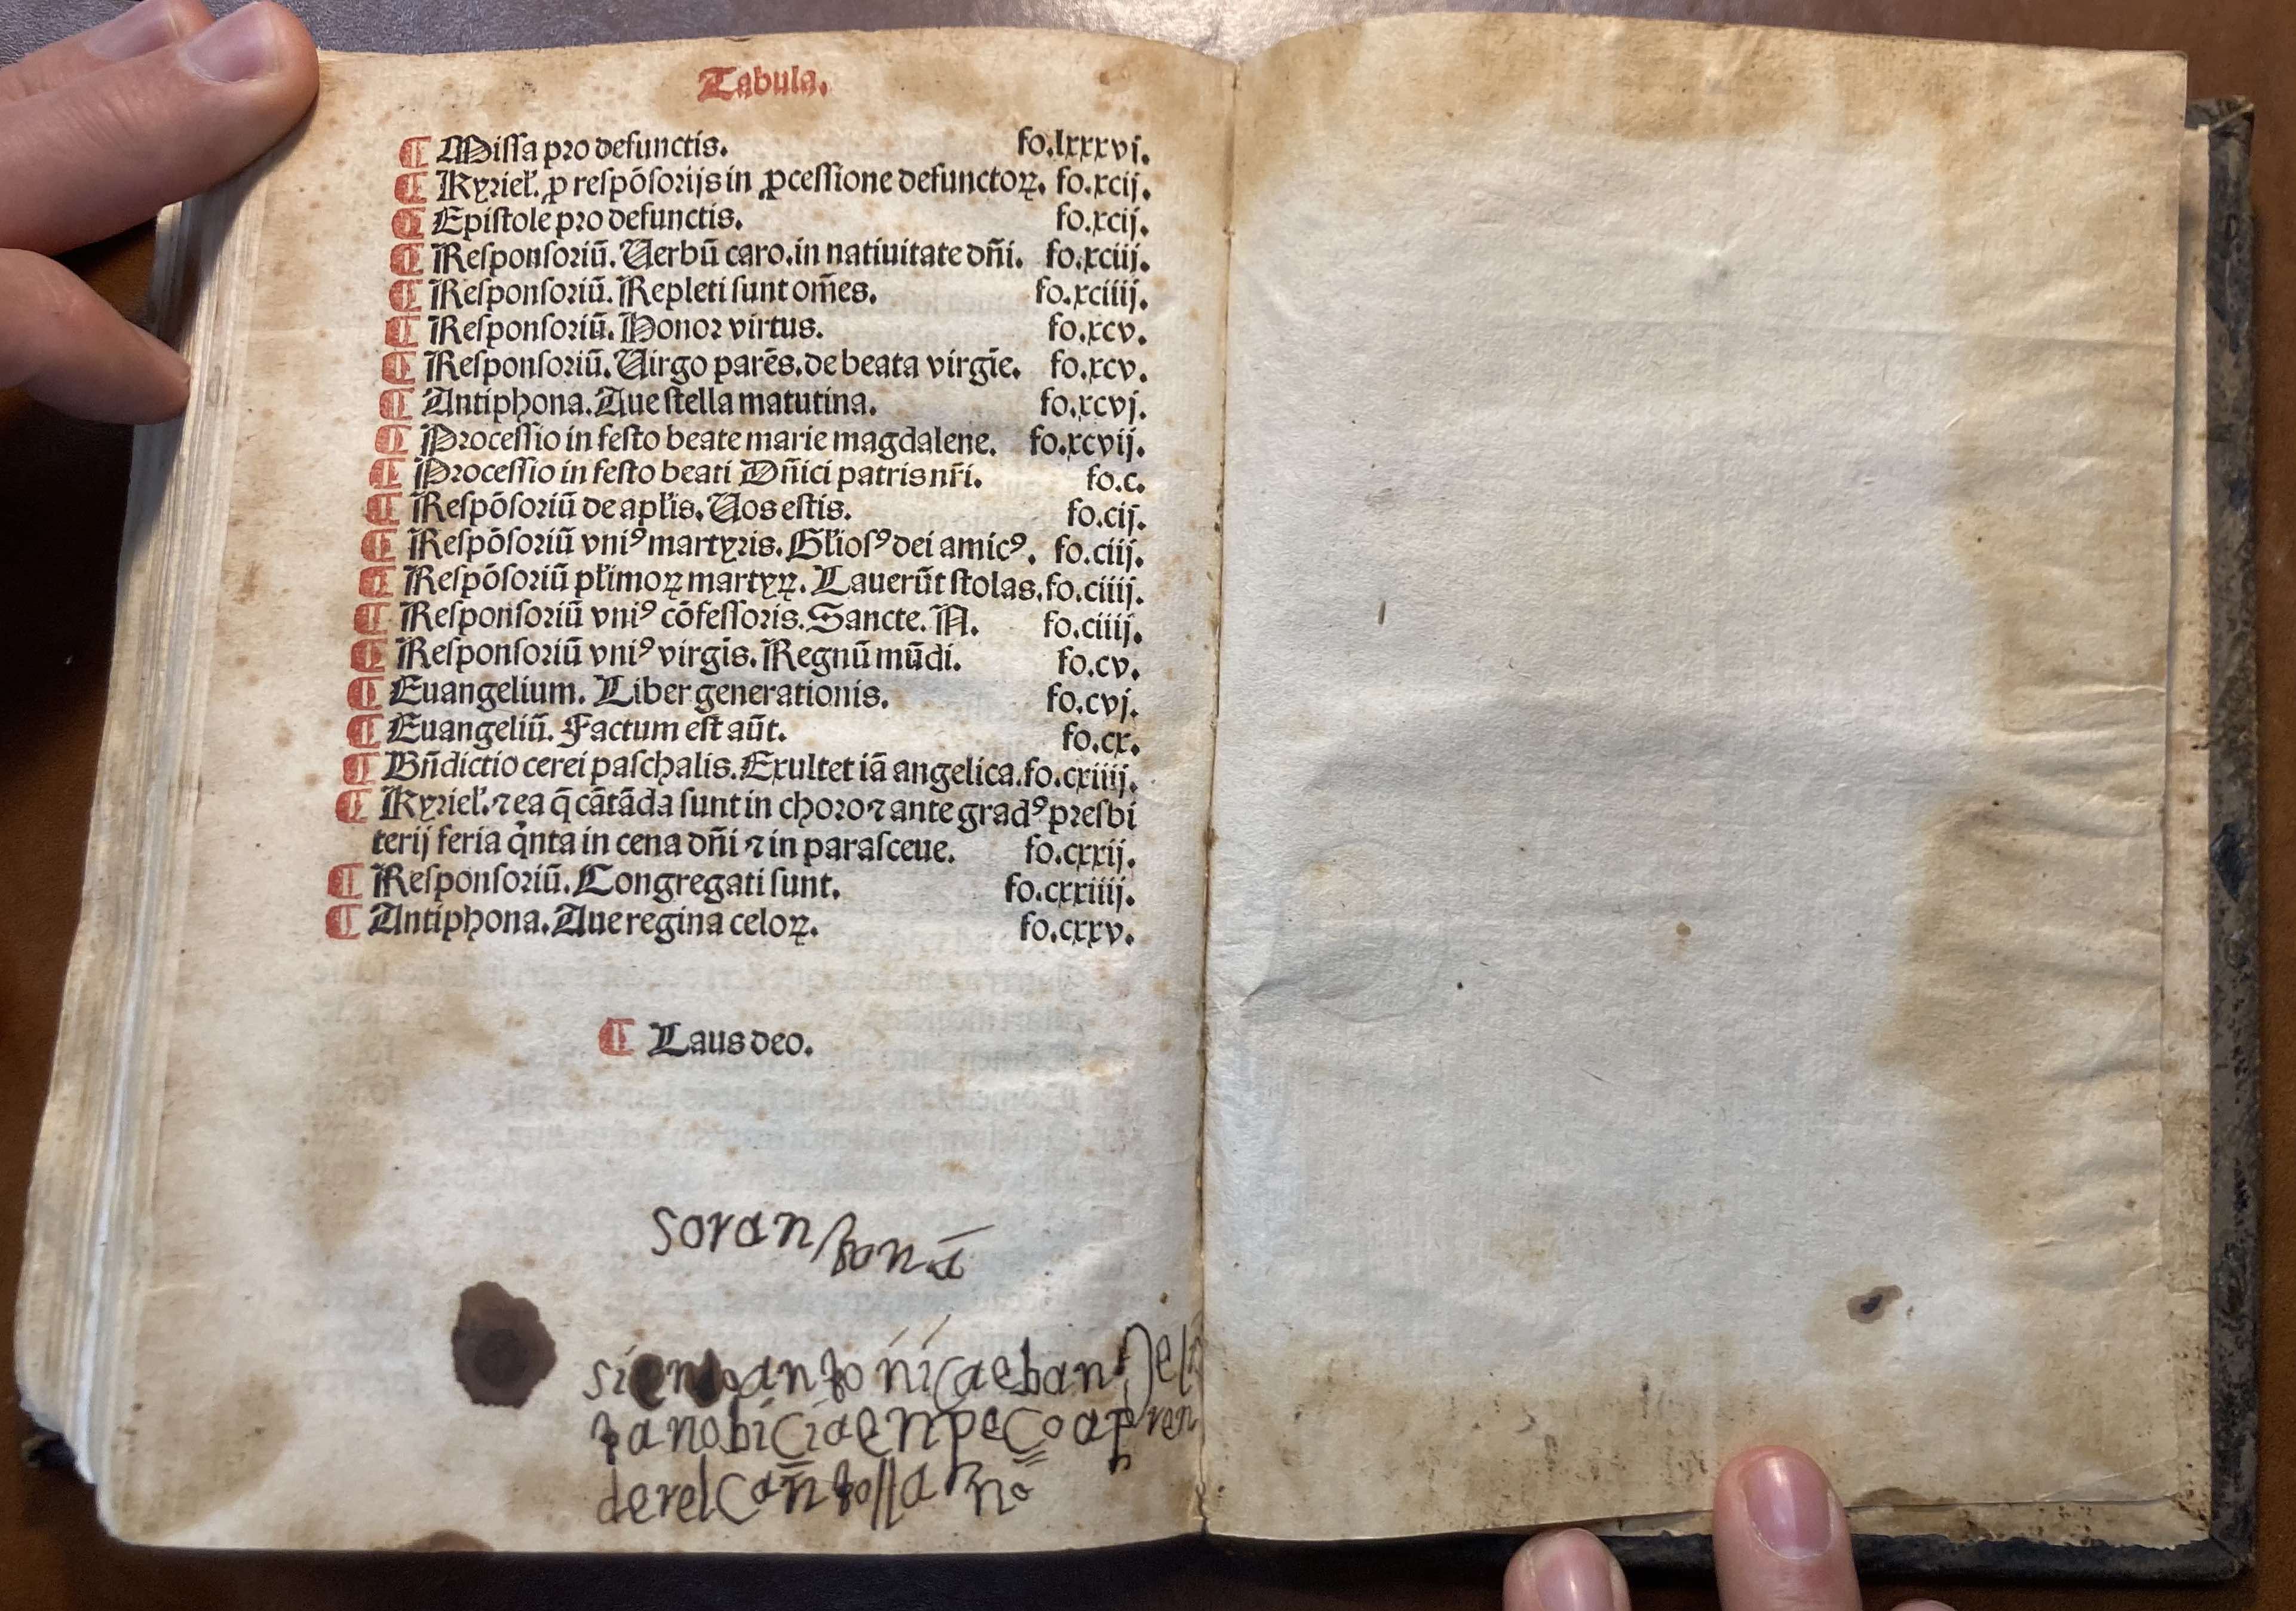 Tabula.
¶ Missa pro defunctis. fo.lxxxvj.
¶ Kyriel̄. ꝓ respōsorijs in ꝓcessione defunctoꝝ. fo.xcij.
¶ Epistole pro defunctis. fo.xcij.
¶ Responsoriū. Uerbū caro. in natiuitate dn̄i. fo.xciij.
¶ Responsoriū. Repleti sunt om̄es. fo.xciiij.
¶ Responsoriū. Honor virtus. fo.xcv.
¶ Responsoriū. Uirgo parēs. de beata virgīe. fo.xcv.
¶ Antiphona. Aue stella matutina. fo.xcvj.
¶ Processio in festo beate marie magdalene. fo.xcvij.
¶ Processio in festo beati Dn̄ici patris nr̄i. fo.c.
¶ Respōsoriū de apl̄is. Uos estis. fo.cij.
¶ Respōsoriū vniꝰ martyris. Gl̄iosꝰ dei amicꝰ. fo.ciij.
¶ Respōsoriū pl̄imoꝝ martyꝝ. Lauerūt stolas. fo.ciiij.
¶ Responsoriū vniꝰ cōfessoris. Sancte. N. fo.ciiij.
¶ Responsoriū vniꝰ virgis. Regnū mūdi. fo.cv.
¶ Euangelium. Liber generationis. fo.cvj.
¶ Euangeliū. Factum est aūt. fo.cx.
¶ Bn̄dictio cerei paschalis. Exultet iā angelica. fo.cxiiij.
¶ Kyriel̄. ⁊ ea q̄ cātāda sunt in choro ⁊ ante gradꝰ presbi
terij feria qͥnta in cena dn̄i ⁊ in parasceue. fo.cxxij.
¶ Responsoriū. Congregati sunt. fo.cxxiiij.
¶ Antiphona. Aue regina celoꝝ. fo.cxxv.
¶ Laus deo.
soran
nobiciaenpeçoapren
derelcan